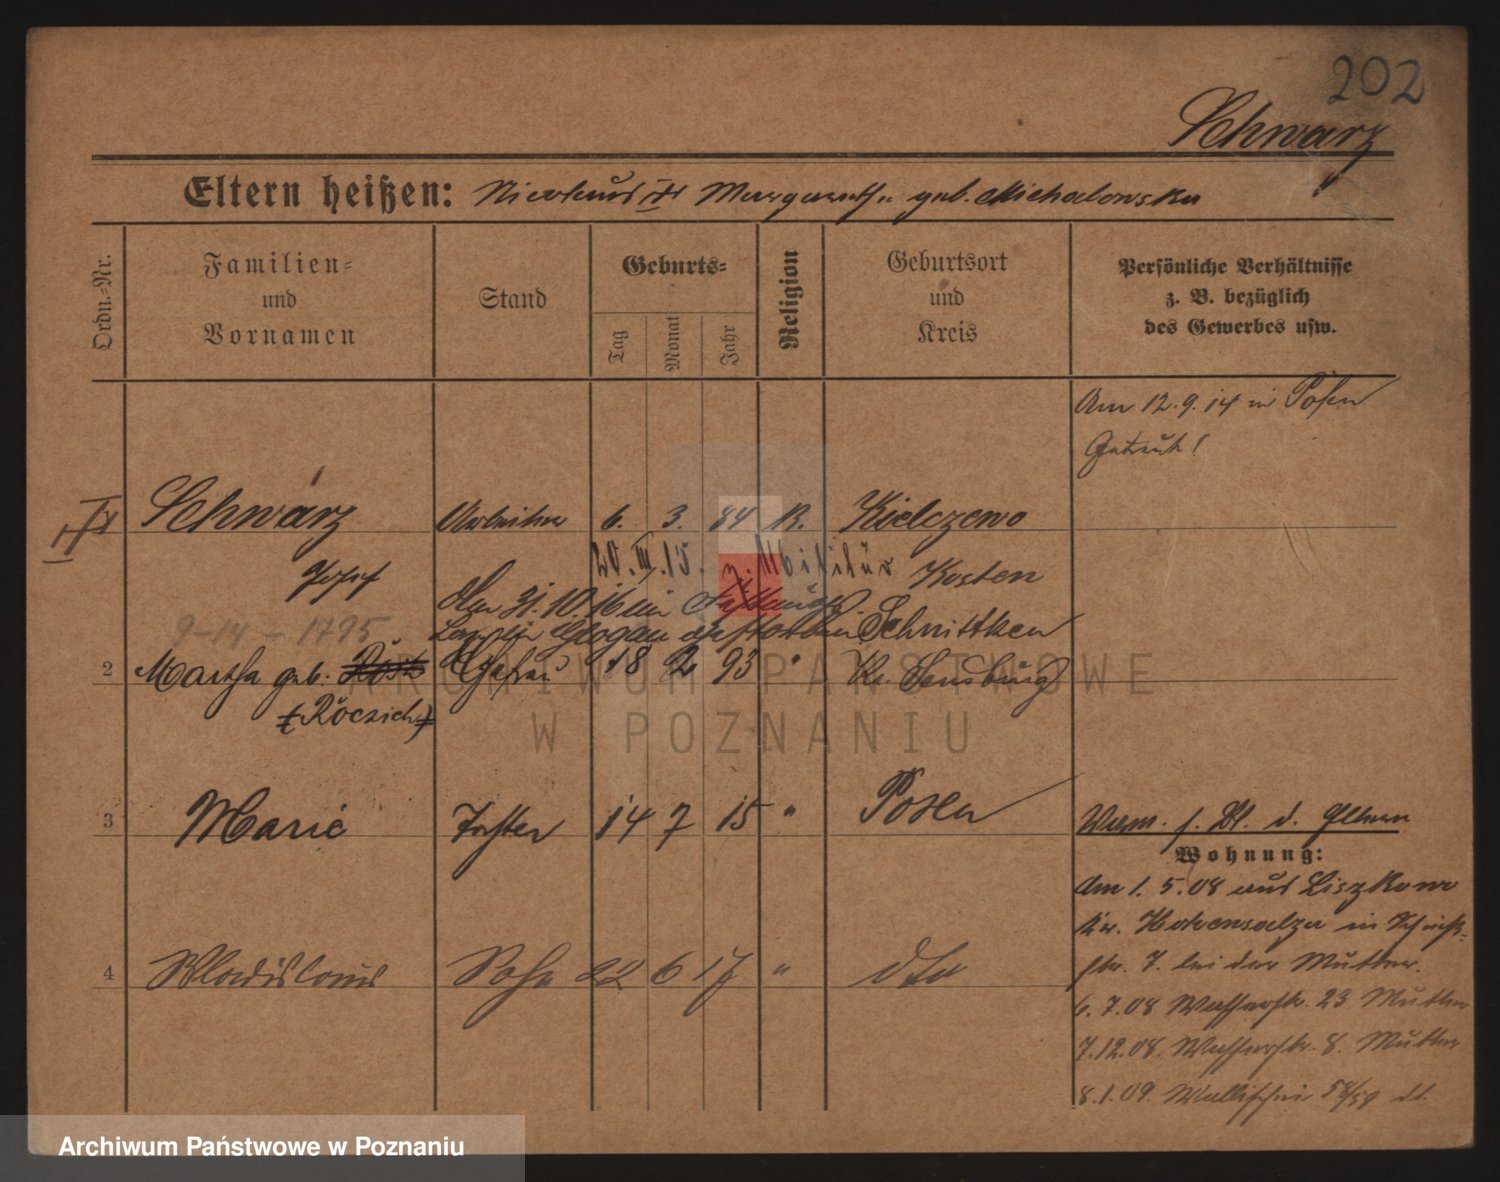 202
Schwarz
Eltern heißen: Margareth geb. Michalowska
Ordn.-Nr.
Familien- und Vornamen
Stand
Geburts-
Tag
Monat
Jahr
Religion
Geburtsort und Kreis
Persönliche Verhältnisse
z. B. bezüglich
des Gewerbes usw.
Am 12.9.14 in Posen
Getraut!
Schwarz Arbeiter 6. 3. 84 K. Kielczewo
Josef 20.III.15. z. Militär Kosten
Am 31.10.16 im
Glogau gestorben Schnittken
9-14-1795
2 Martha geb. Ehefrau 18 2 93 " Kr. Sensburg
(Roczich)
3 Marie Tochter 14 7 15 " Posen
Verm. s. Bl. d. Eltern
Wohnung:
Am 1.5.08 aus Liszkowo
Kr. Hohensalza in Schieß-
str. 7. bei der Mutter.
4 Wladislaus Sohn 22 6 17 " dto
6.7.08 Wasserstr. 23 Mutter
7.12.08. Wasserstr. 8. Mutter
8.1.09. Wallischei 58/59 dt.
ARCHIWUM PAŃSTWOWE
W POZNANIU
Archiwum Państwowe w Poznaniu